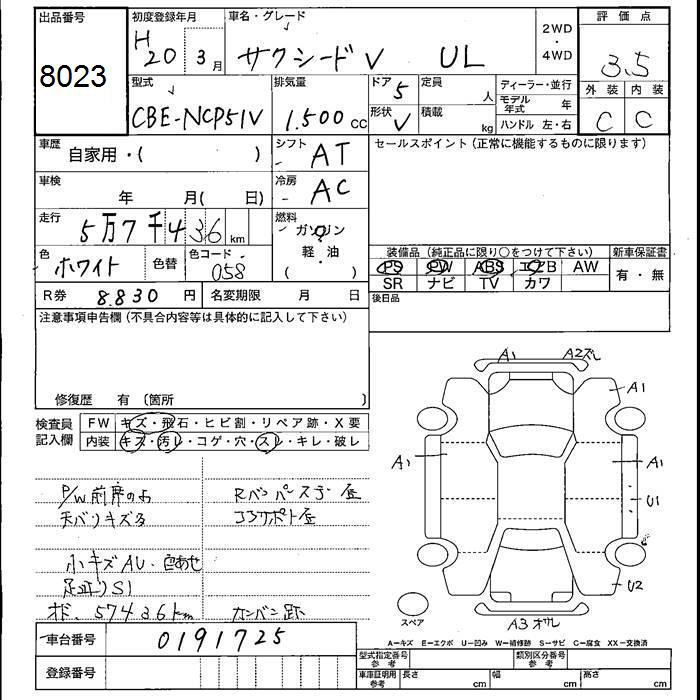 出品番号 初度登録年月 車名・グレード 2WD ・ 4WD 評価点
8023 H 20 3月 サクシードV UL 3.5
型式 排気量 ドア 5 定員 人 ディーラー・並行 外装 内装
CBE-NCP51V 1.500 cc 形状 V 積載 kg モデル年式 年 C C
ハンドル 左・右
車歴 自家用・( ) シフト AT セールスポイント(正常に機能するものに限ります)
車検 年 月( 日) 冷房 AC
走行 5万7千436 km 燃料 ガソリン
軽・油
( )
色 ホワイト 色替 色コード 058 装備品(純正品に限り○をつけて下さい) 新車保証書
PS PW ABS エアB AW 有・無
R券 8.830 円 名変期限 月 日 SR ナビ TV カワ
注意事項申告欄(不具合内容等は具体的に記入して下さい) 後日品
修復歴 有 〔箇所 〕
検査員記入欄 FW キズ・飛石・ヒビ割・リペア跡・X要
内装 キズ・汚レ・コゲ・穴・スレ・キレ・破レ
A1 A2ズレ
A1
A1 A1
U1
P/W前席のみ
天バリキズ多
小キズAU・色あせ
足廻りS1
オド. 57436km カンバン跡
U2
スペア A3オクレ
車台番号 0191725
A=キズ E=エクボ U=凹み W=補修跡 S=サビ C=腐食 XX=交換済
登録番号
型式指定番号 参考 類別区分番号 参考
車庫証明用 参考 長さ cm 幅 cm 高さ cm